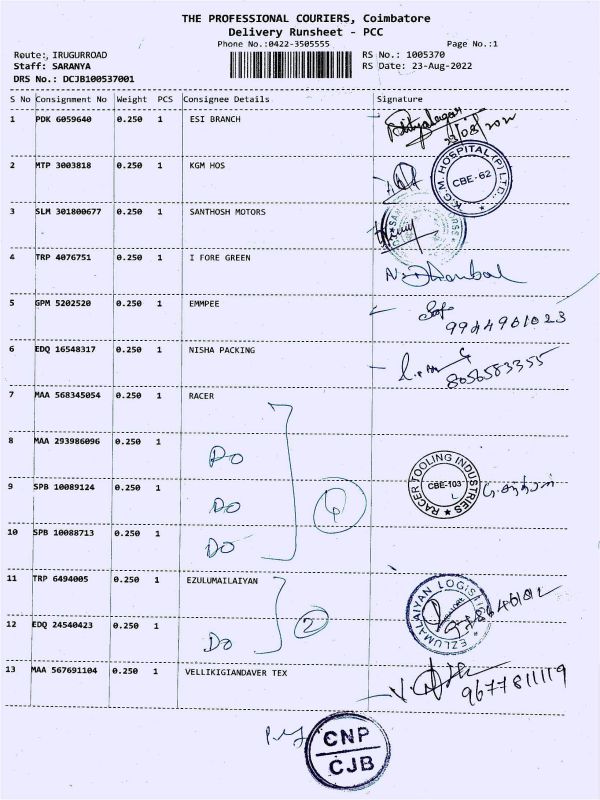 THE PROFESSIONAL COURIERS, Coimbatore
Delivery Runsheet - PCC
Phone No.:0422-3505555 Page No.:1
Route:, IRUGURROAD RS No.: 1005370
Staff: SARANYA RS Date: 23-Aug-2022
DRS No.: DCJB100537001
S No Consignment No Weight PCS Consignee Details Signature
1 PDK 6059640 0.250 1 ESI BRANCH
2 MTP 3003818 0.250 1 KGM HOS
K.G.M. HOSPITAL (P) LTD.,
CBE-62
3 SLM 301800677 0.250 1 SANTHOSH MOTORS
4 TRP 4076751 0.250 1 I FORE GREEN
5 GPM 5202520 0.250 1 EMMPEE
9944961023
6 EDQ 16548317 0.250 1 NISHA PACKING
8056583355
7 MAA 568345054 0.250 1 RACER
8 MAA 293986096 0.250 1
Do
RACER TOOLING INDUSTRIES
CBE-103
9 SPB 10089124 0.250 1
Do
10 SPB 10088713 0.250 1
Do
11 TRP 6494005 0.250 1 EZULUMAILAIYAN
EZLUMALAIYAN LOGISTICS
12 EDQ 24540423 0.250 1
Do 2
13 MAA 567691104 0.250 1 VELLIKIGIANDAVER TEX
9677811119
CNP
CJB